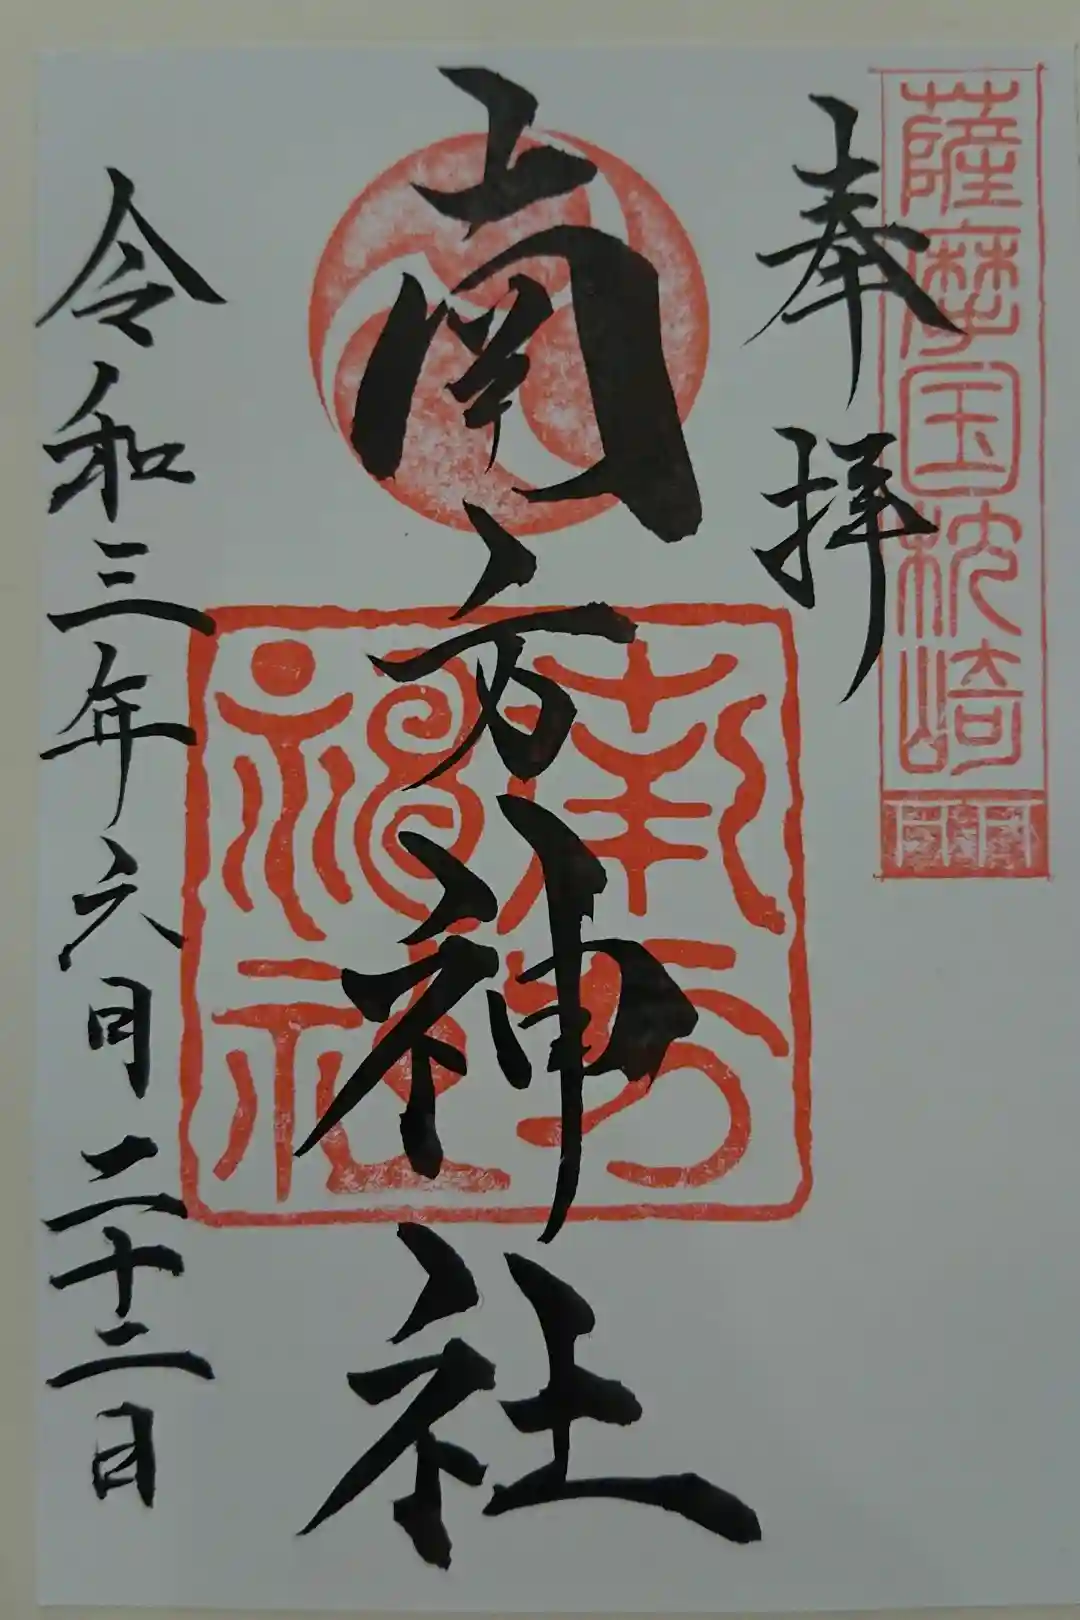 薩摩国枕崎
奉拝
南方神社
南方神社
令和三年六月二十二日